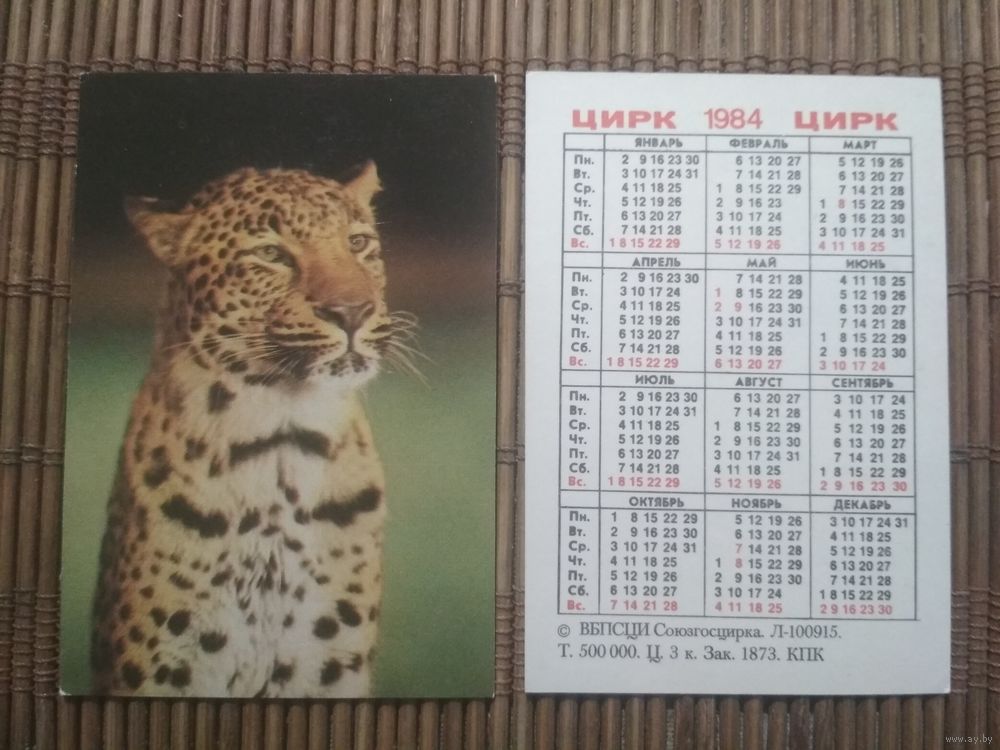 ЦИРК 1984 ЦИРК
ЯНВАРЬ ФЕВРАЛЬ МАРТ
Пн. 2 9 16 23 30 6 13 20 27 5 12 19 26
Вт. 3 10 17 24 31 7 14 21 28 6 13 20 27
Ср. 4 11 18 25 1 8 15 22 29 7 14 21 28
Чт. 5 12 19 26 2 9 16 23 1 8 15 22 29
Пт. 6 13 20 27 3 10 17 24 2 9 16 23 30
Сб. 7 14 21 28 4 11 18 25 3 10 17 24 31
Вс. 1 8 15 22 29 5 12 19 26 4 11 18 25
АПРЕЛЬ МАЙ ИЮНЬ
Пн. 2 9 16 23 30 7 14 21 28 4 11 18 25
Вт. 3 10 17 24 1 8 15 22 29 5 12 19 26
Ср. 4 11 18 25 2 9 16 23 30 6 13 20 27
Чт. 5 12 19 26 3 10 17 24 31 7 14 21 28
Пт. 6 13 20 27 4 11 18 25 1 8 15 22 29
Сб. 7 14 21 28 5 12 19 26 2 9 16 23 30
Вс. 1 8 15 22 29 6 13 20 27 3 10 17 24
ИЮЛЬ АВГУСТ СЕНТЯБРЬ
Пн. 2 9 16 23 30 6 13 20 27 3 10 17 24
Вт. 3 10 17 24 31 7 14 21 28 4 11 18 25
Ср. 4 11 18 25 1 8 15 22 29 5 12 19 26
Чт. 5 12 19 26 2 9 16 23 30 6 13 20 27
Пт. 6 13 20 27 3 10 17 24 31 7 14 21 28
Сб. 7 14 21 28 4 11 18 25 1 8 15 22 29
Вс. 1 8 15 22 29 5 12 19 26 2 9 16 23 30
ОКТЯБРЬ НОЯБРЬ ДЕКАБРЬ
Пн. 1 8 15 22 29 5 12 19 26 3 10 17 24 31
Вт. 2 9 16 23 30 6 13 20 27 4 11 18 25
Ср. 3 10 17 24 31 7 14 21 28 5 12 19 26
Чт. 4 11 18 25 1 8 15 22 29 6 13 20 27
Пт. 5 12 19 26 2 9 16 23 30 7 14 21 28
Сб. 6 13 20 27 3 10 17 24 1 8 15 22 29
Вс. 7 14 21 28 4 11 18 25 2 9 16 23 30
© ВБПСЦИ Союзгосцирка. Л-100915.
Т. 500 000. Ц. 3 к. Зак. 1873. КПК
www.ay.by